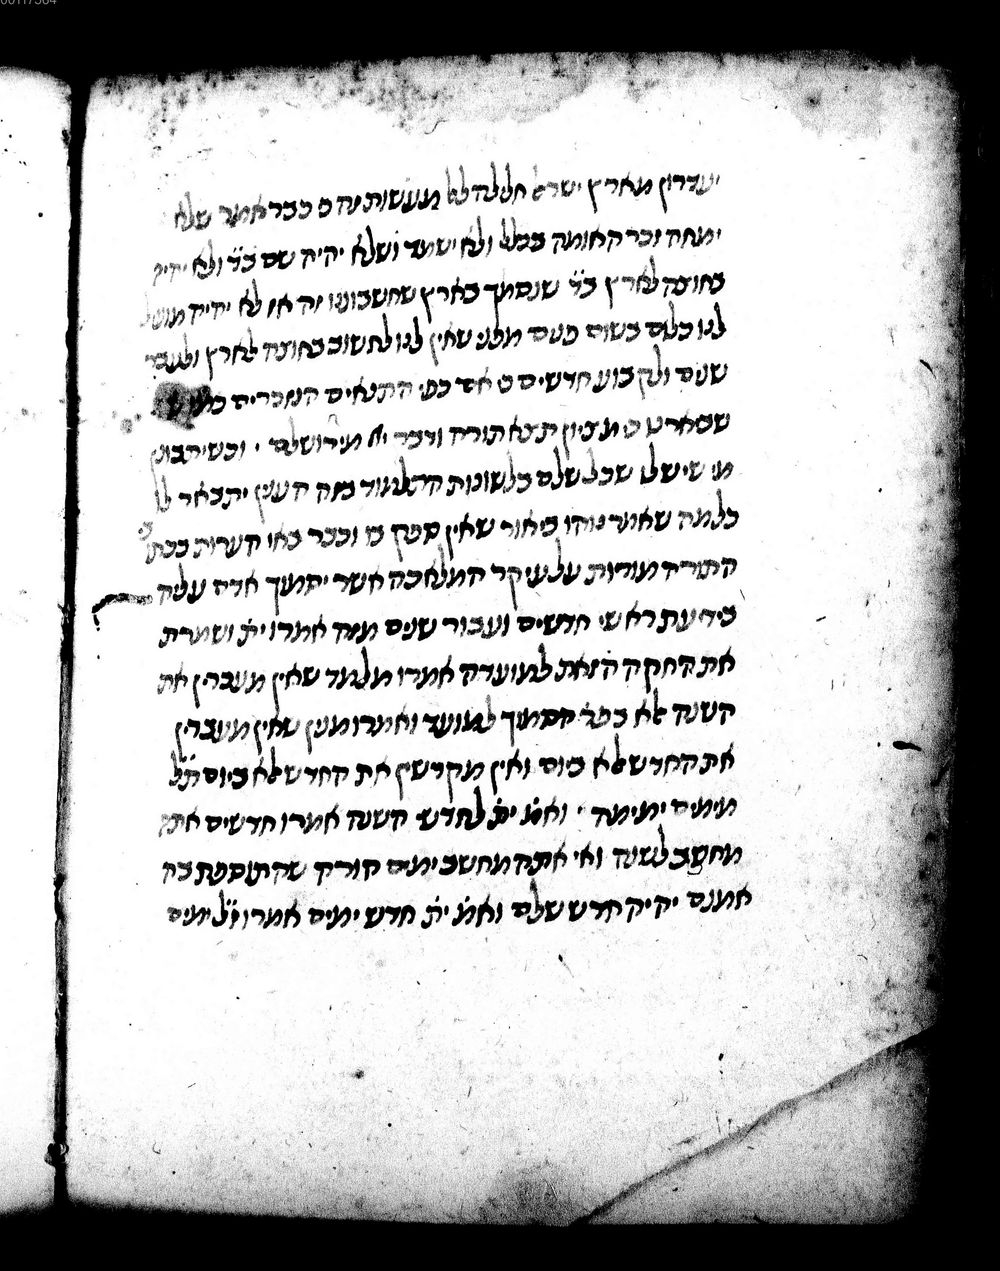 יעדרון מארץ ישראל חלילה לאל מעשות זה כ כבר אמר שלא
ימחה זכר האומה בכלל ולא ישמד ושלא יהיה שם ב״ד ולא יהיה
בחוצה לארץ ב״ד שנסמך בארץ שחשבוננו זה אז לא יהיה מועיל
לנו כלום בשום פנים מפני שאין לנו לחשוב בחוצה לארץ ולעבר
שנים ולקבוע חדשים כ אם כפי התנאים הנזכרים כמו
שבארנו כ מציון תצא תורה ודבר יי׳ מירושלם · וכשיתבונן
מי שיש לו שכל שלם בלשונות התלמוד בזה הענין יתבאר לו
כל מה שאמרנוהו ביאור שאין ספק בו וכבר באו הערות בכתבי
התורה מורות על עיקר המלאכה אשר יסמוך אדם עליה
בידיעת ראשי חדשים ועבור שנים מזה אמרו ית׳ ושמרת
את החקה הזאת למועדה אמרו מלמד שאין מעברין את
השנה אלא בפר׳ הסמוך למועד ואמרו מנין שאין מעברין
את החדש אלא ביום ואין מקדשין את החדש אלא ביום ת״ל
מימים ימימה · ואמ׳ ית׳ לחדשי השנה אמרו חדשים אתה
מחשב לשנה ואי אתה מחשב ימים הורה שהתוספת בה
אמנם יהיה חדש שלם ואמ׳ ית׳ חדש ימים אמרו ז״ל ימים